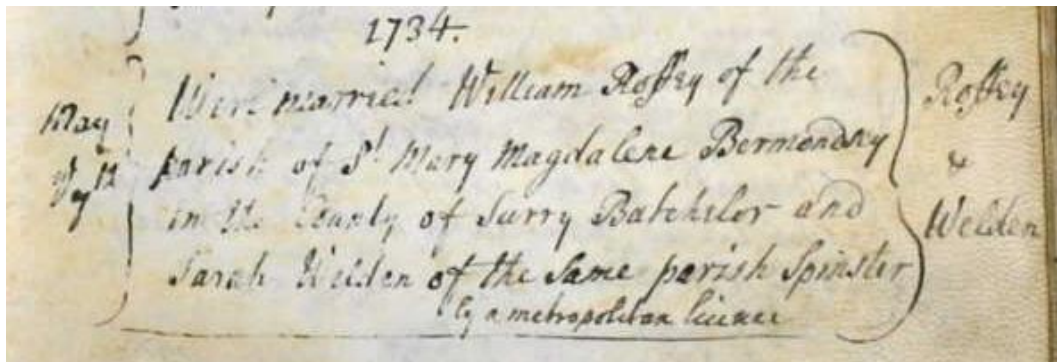 1734.
May
Were married William Roffey of the
parish of St Mary Magdalene Bermondsey
in the County of Surry Batchelor and
Sarah Welden of the same parish Spinster
by a metropolitan licence
Roffey
&
Welden